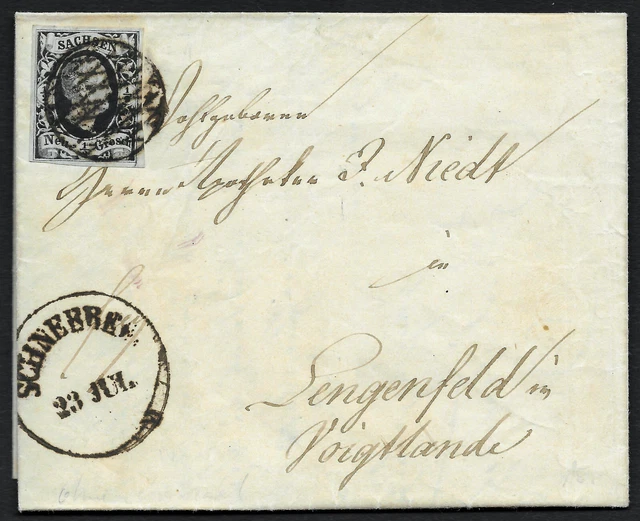 SACHSEN
Neu-Grosch
Wohlgeboren
Herrn Apotheker J. Niedt
in
Lengenfeld in
Voigtlande
SCHNEEBERG
23 JUL.